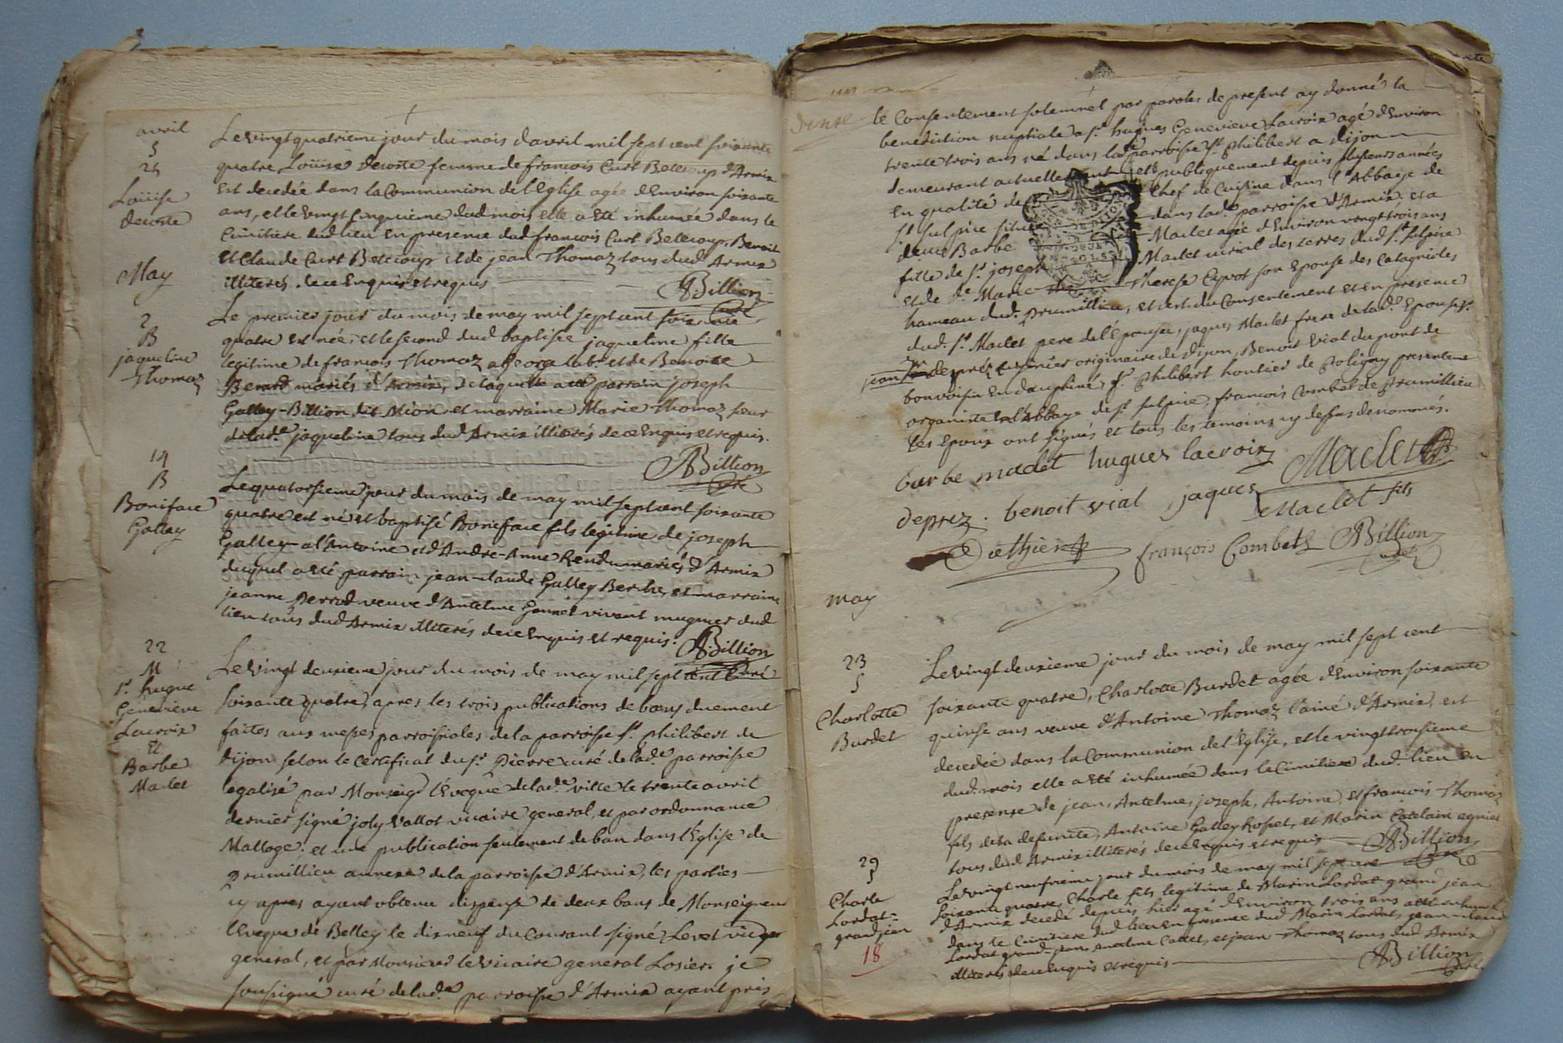 avril
S
25
Loüise
Decoste
Le vingt quatrieme jour du mois davril mil sept cent soixante
quatre Loüise Decoste femme de françois Curt Belcoup d'Armix
Est decedée dans la Communion de l'Eglise agée d'Environ soixante
ans, et le vingt cinquieme dud mois elle a Eté inhumée dans le
Cimitiere dud lieu en presence dud françois Curt Betecoup, Benoit
et Claude Curt Betecoup et de jean Thomaz tous dud Armix
illiterés de ce Enquis et requis
ABillion
Curé
May
2
B
jaqueline
Thomaz
Le premier jour du mois de may mil sept cent soixante
quatre est née, et le second dud baptisée jaqueline fille
legitime de françois Thomaz lab.r et de Benoite
Berard mariés d'Armix, de laquelle a eté parrain joseph
Galley-Billion dit Mion et marraine Marie Thomaz seur
de lad.e jaqueline tous dud Armix illiterés de ce Enquis et requis.
ABillion
Curé
14
B
Boniface
Galley
Le quatorsieme jour du mois de may mil sept cent soixante
quatre est né et baptisé Boniface fils legitime de joseph
Galley-al'Antoine et d'André-Anne Rendu mariés d'Armix
duquel a eté parrain jean claude Galley Berche, et marraine
jeanne Perrod veuve d'Antelme Gonnet vivant mugnier dud
lieu tous dud Armix illiterés de ce Enquis et requis.
ABillion
22
M
s.r hugue
Genevieve
Lacroix
et
Barbe
Maclet
Le vingt deuxieme jour du mois de may mil sept cent
soixante quatre, apres les trois publications de bans duement
faites aux messes parroissiales de la parroisse s.t philibert de
dijon selon le certificat du s.r Pierre curé de lad.e parroisse
legalisé par Monseig.r l'Eveque de lad.e ville le trente avril
dernier signé joly Vallot vicaire general, et par ordonnance
Malloge. et une publication seulement de ban dans l'Eglise de
prumillieu annexe de la parroisse d'Armix, les parties
cy apres ayant obtenu dispense de deux bans de Monseigneur
l'Eveque de Belley le dixneuf du Courant signé Levet vic.
general, et par Monsieur le vicaire general Losier. je
soussigné curé de lad.e parroisse d'Armix ayant pris
le Consentement solemnel par paroles de present ay donné la
benediction nuptiale a s.r hugues Genevieve Lacroix agé d'Environ
trente trois ans né dans la parroisse s.t philibert a dijon
demeurant actuellement et publiquement depuis plusieurs années
En qualité de Chef de Cuisine dans l'Abbaye de
s.t sulpice située dans lad.e parroisse d'Armix, et a
de.lle Barbe Maclet agée d'Environ vingt trois ans
fille de s.r joseph Maclet des terres dud s.t sulpice
et de d.e Marie Therese Cyvot son Epouse des Catagnoles
hameau dud. prumillieu, et c'est du Consentement et en presence
dud. s.r Maclet pere de l'Epouse, jaques Maclet frere de lad.e Epouse, s.r
jean deprez Cuisinier originaire de dijon, Benoit Vial du pont de
bonvoisin En dauphiné, s.r philibert de poligny presentement
organiste à l'Abbaye de s.t sulpice, françois Combet de prumillieu
Les Epoux ont signés et tous les temoins cy dessus denommés.
barbe maclet hugues lacroix Maclet
deprez. benoit vial jaques Maclet fils
françois Combet ABillion
may
23
S
Charlotte
Burdet
Le vingt deuxieme jour du mois de may mil sept cent
soixante quatre, Charlotte Burdet agée d'Environ soixante
quinse ans veuve d'Antoine Thomaz l'ainé d'Armix, est
decedée dans la Communion de l'Eglise, et le vingt troisieme
dud. mois elle a eté inhumée dans le Cimitiere dud. lieu en
presense de jean, Antelme, joseph, Antoine, et françois Thomaz
fils de la defunte, Antoine Galley Rosset, et Marin Catelain
tous dud Armix illiterés de ce Enquis et requis
ABillion
29
S
Charle
Lordat-
grand jean
18
Le vingt neufvieme jour du mois de may mil sept cent
soixante quatre, Charle fils legitime de Marin Lordat-grand jean
d'Armix decedé depuis hier agé d'Environ trois ans a eté inhumé
dans le Cimitiere dud lieu en presence dud Marin Lordat, jean claude
Lordat grand-jean, Antelme Callet, et jean Thomaz tous dud Armix
illiterés de ce Enquis et requis
ABillion
Curé